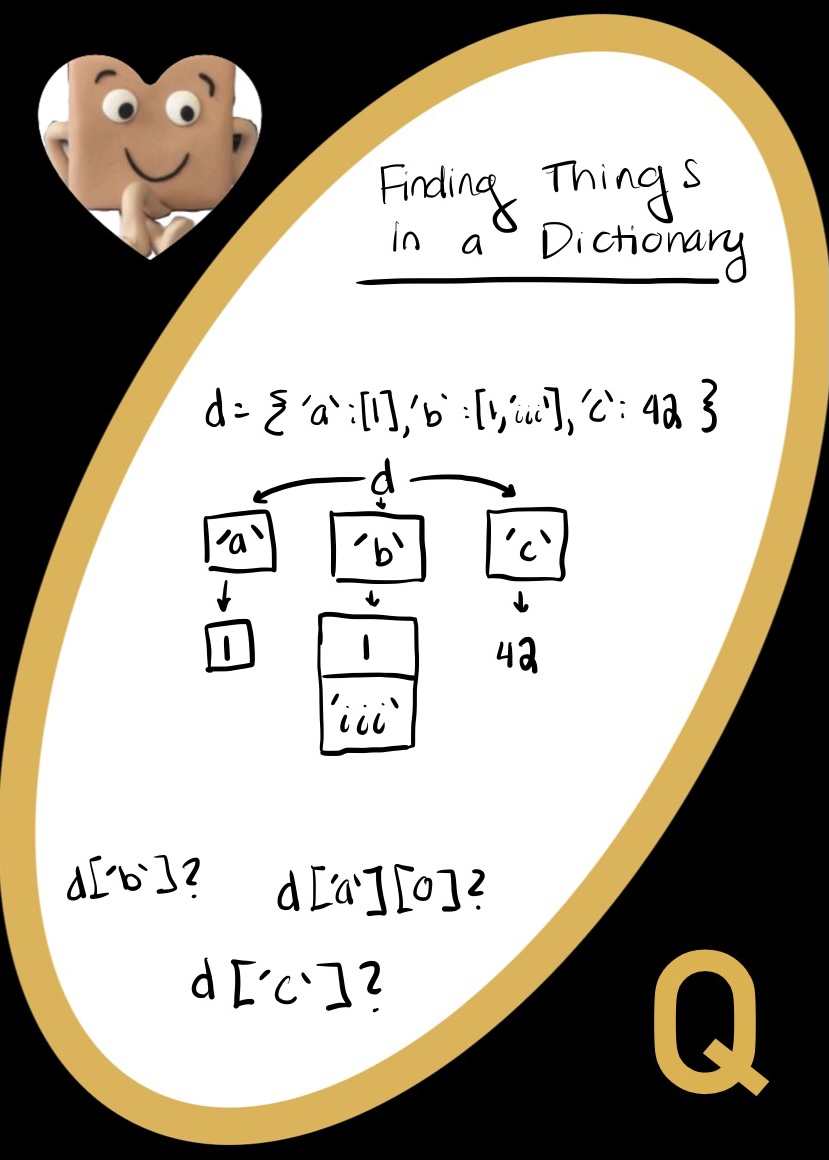 Finding Things
in a Dictionary
d = { 'a' : [1], 'b' : [1, 'iii'], 'c' : 42 }
d
'a' 'b' 'c'
1 1 42
'iii'
d['b']? d['a'][0]?
d['c']?
Q